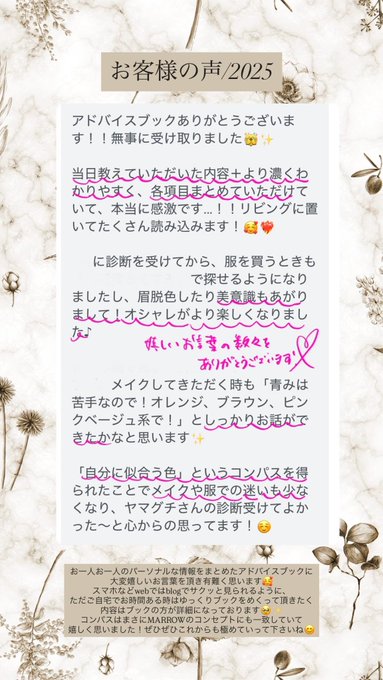 お客様の声/2025
アドバイスブックありがとうございま
す！！無事に受け取りました🐯✨
当日教えていただいた内容＋より濃くわ
かりやすく、各項目まとめていただけて
いて、本当に感激です...！！リビングに置
いてたくさん読み込みます！🥰❤️‍🔥
に診断を受けてから、服を買うときも
で探せるようになり
ましたし、眉脱色したり美意識もあがり
まして！オシャレがより楽しくなりまし
た♪
嬉しいお言葉の数々を
ありがとうございます!
メイクしてきただく時も「青みは
苦手なので！オレンジ、ブラウン、ピン
クベージュ系で！」としっかりお話がで
きたかなと思います✨
「自分に似合う色」というコンパスを得
られたことでメイクや服での迷いも少な
くなり、ヤマグチさんの診断受けてよか
った〜と心からの思ってます！☺️
お一人お一人のパーソナルな情報をまとめたアドバイスブックに
大変嬉しいお言葉を頂き有難く思います🥰
スマホなどwebではblogでサクッと見られるように、
ただご自宅でお時間ある時はゆっくりブックをめくって頂きたく
内容はブックの方が詳細になっております🥹✨
コンパスはまさにMARROWのコンセプトにも一致していて
嬉しく思いました！ぜひぜひこれからも極めていって下さいね😊